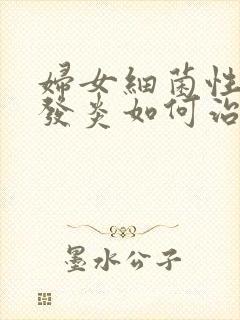 婦女細菌性
發炎如何治
墨水公子